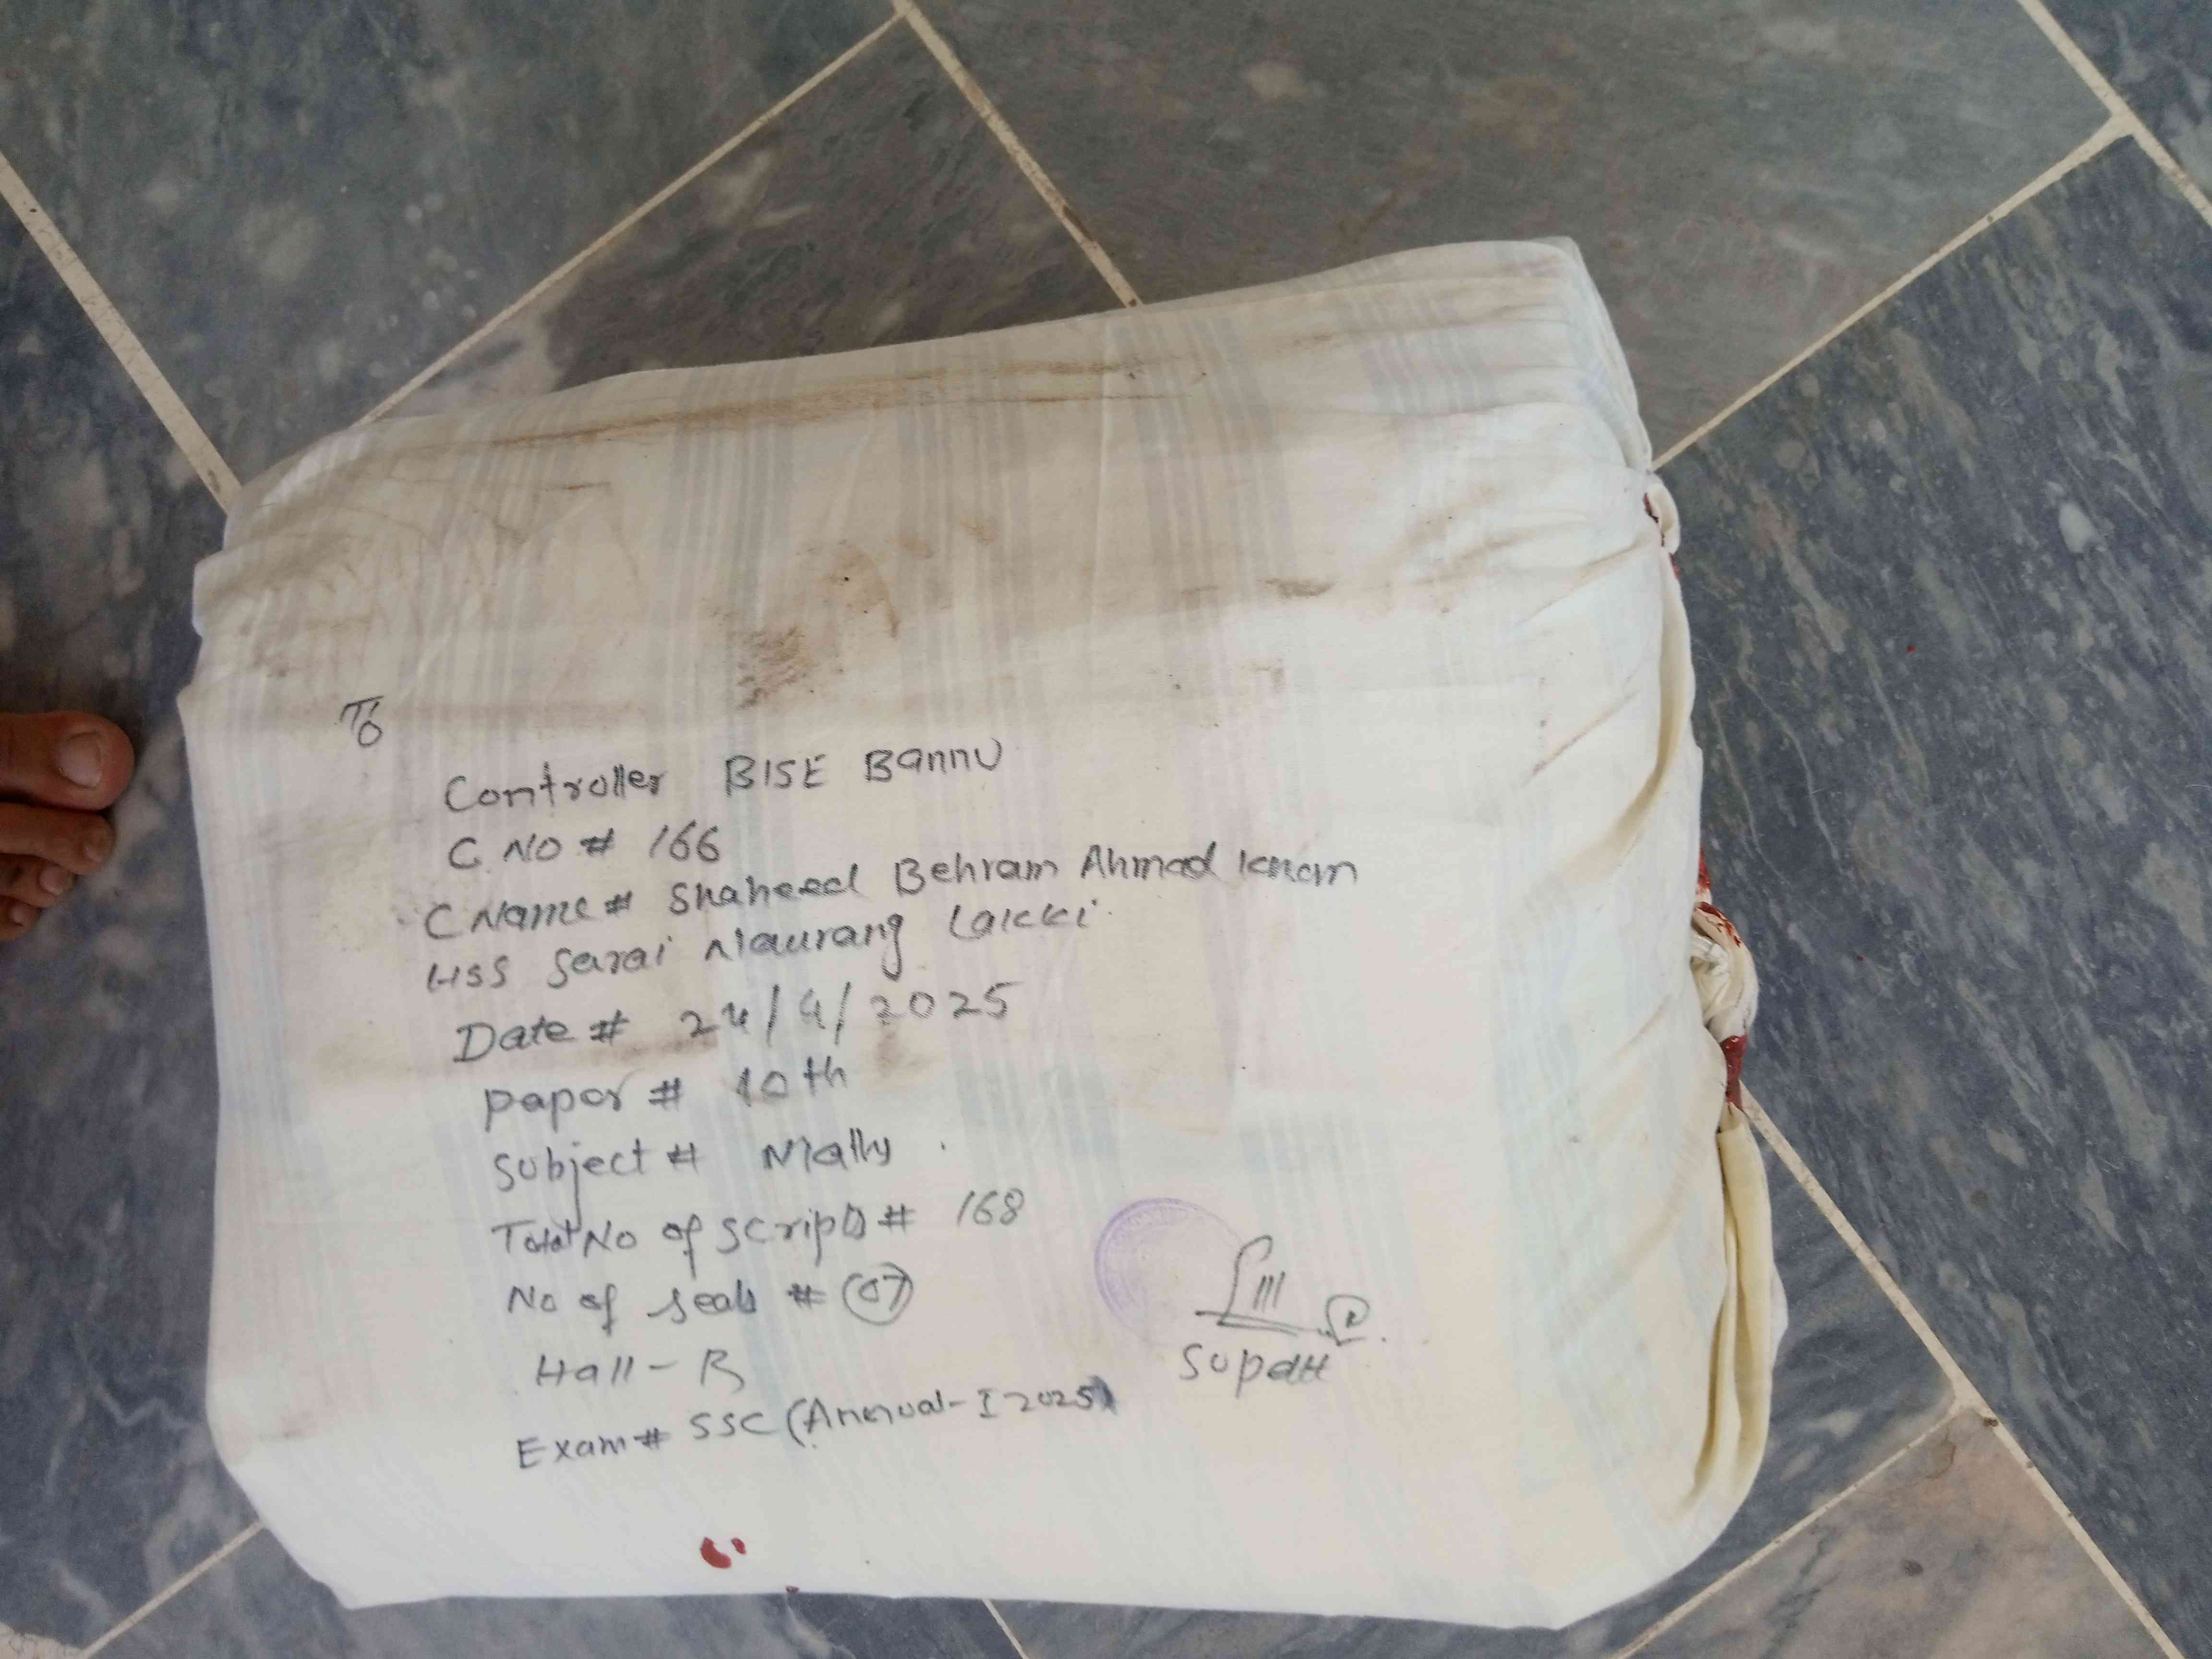 To
Controller BISE Bannu
C. NO # 166
C Name # Shaheed Behram Ahmad Khan
HSS Sarai Naurang Lakki
Date # 24/4/2025
paper # 10th
Subject # Maths
Total No of scripts # 168
No of seals # 07
Hall - B
Exam # SSC (Annual-I 2025)
Supdtt